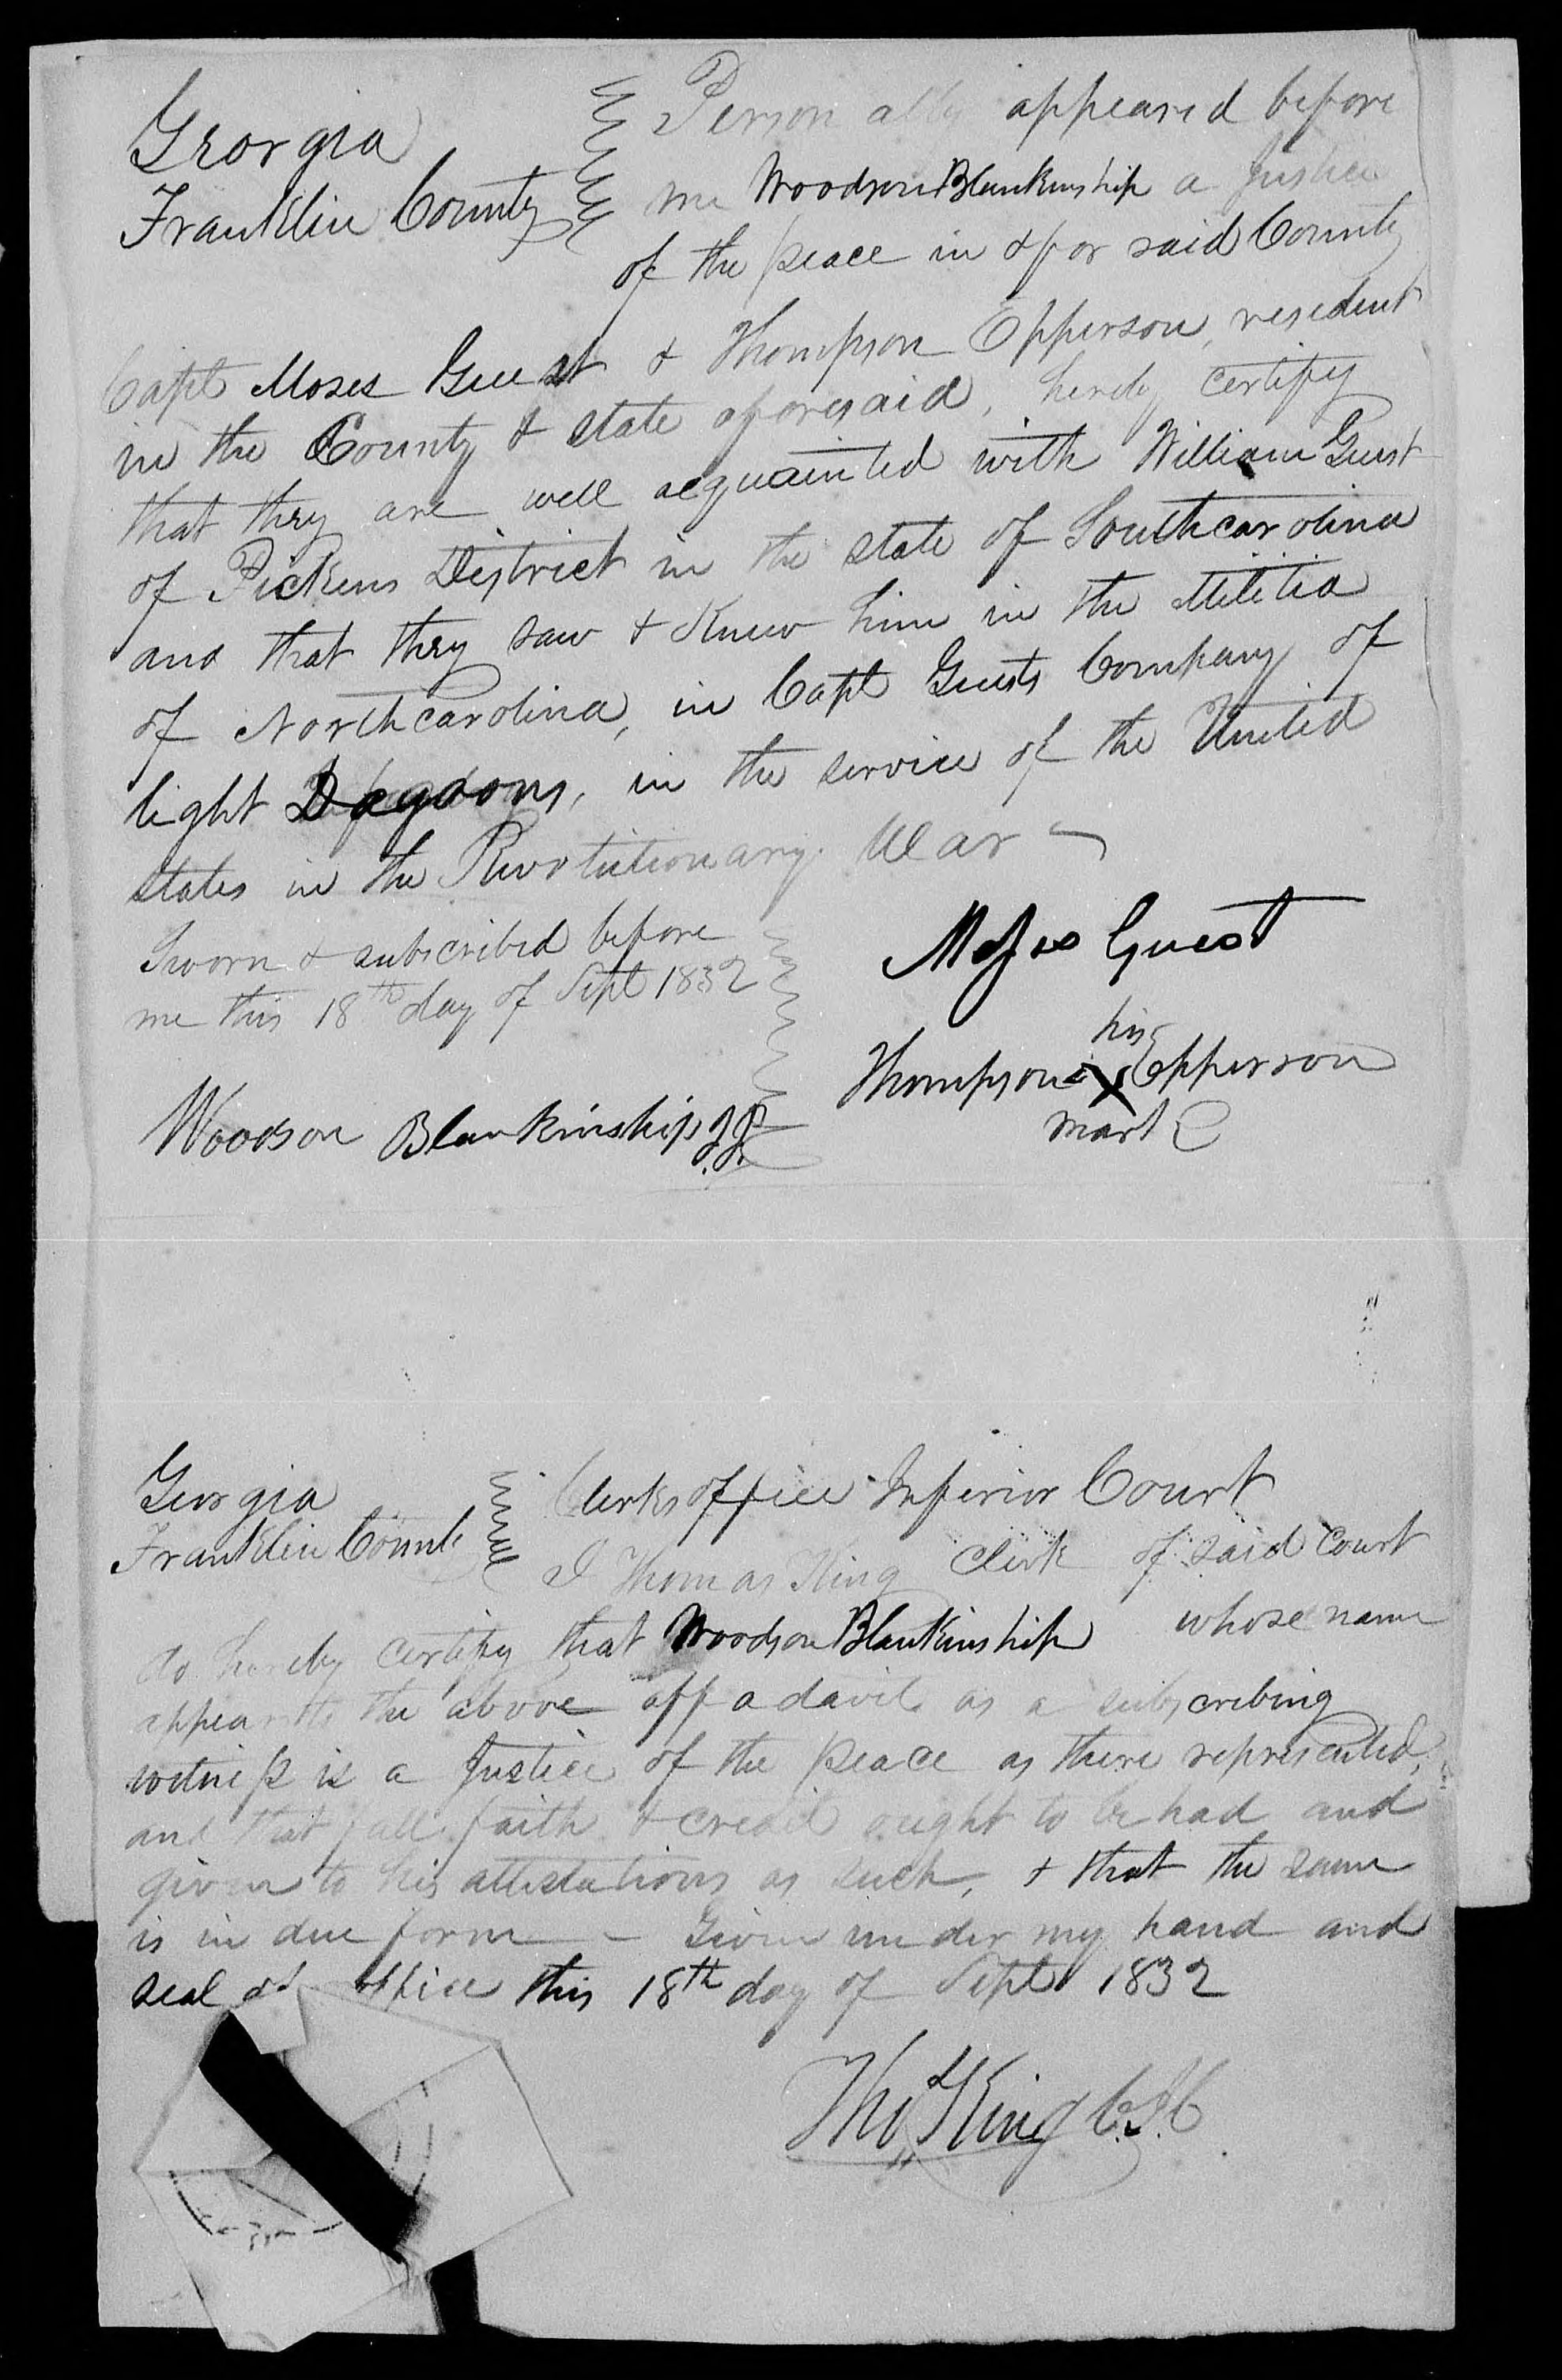 Georgia
Franklin County
Personally appeared before
me Woodson Blankinship a Justice
of the peace in & for said County
Capt Moses Guest & Thompson Epperson, resident
in the County & state aforesaid, hereby certify
that they are well acquainted with William Guest
of Pickens District in the state of Southcarolina
and that they saw & knew him in the Militia
of Northcarolina, in Capt Guests Company of
light Dragoons, in the service of the United
states in the Revolutionary War
Sworn & subscribed before
me this 18th day of Sept 1832
Woodson Blankinship J.P.
Moses Guest
his
Thompson X Epperson
mark
Georgia
Franklin County
Clerks office Inferior Court
I Thomas King Clerk of said Court
do hereby certify that Woodson Blankinship whose name
appears to the above affadavit as a subscribing
witness is a Justice of the peace as there represented,
and that full faith & credit ought to be had and
given to his attestations as such, & that the same
is in due form - Given under my hand and
seal of office this 18th day of Sept 1832
Thos King C.I.C